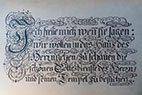 Ich freue mich wenn sie sagen:
wir wollen ins Haus des
Herrn gehen, zu schauen die
schönen Gottesdienste des Herrn
und seinen Tempel zu besuchen.